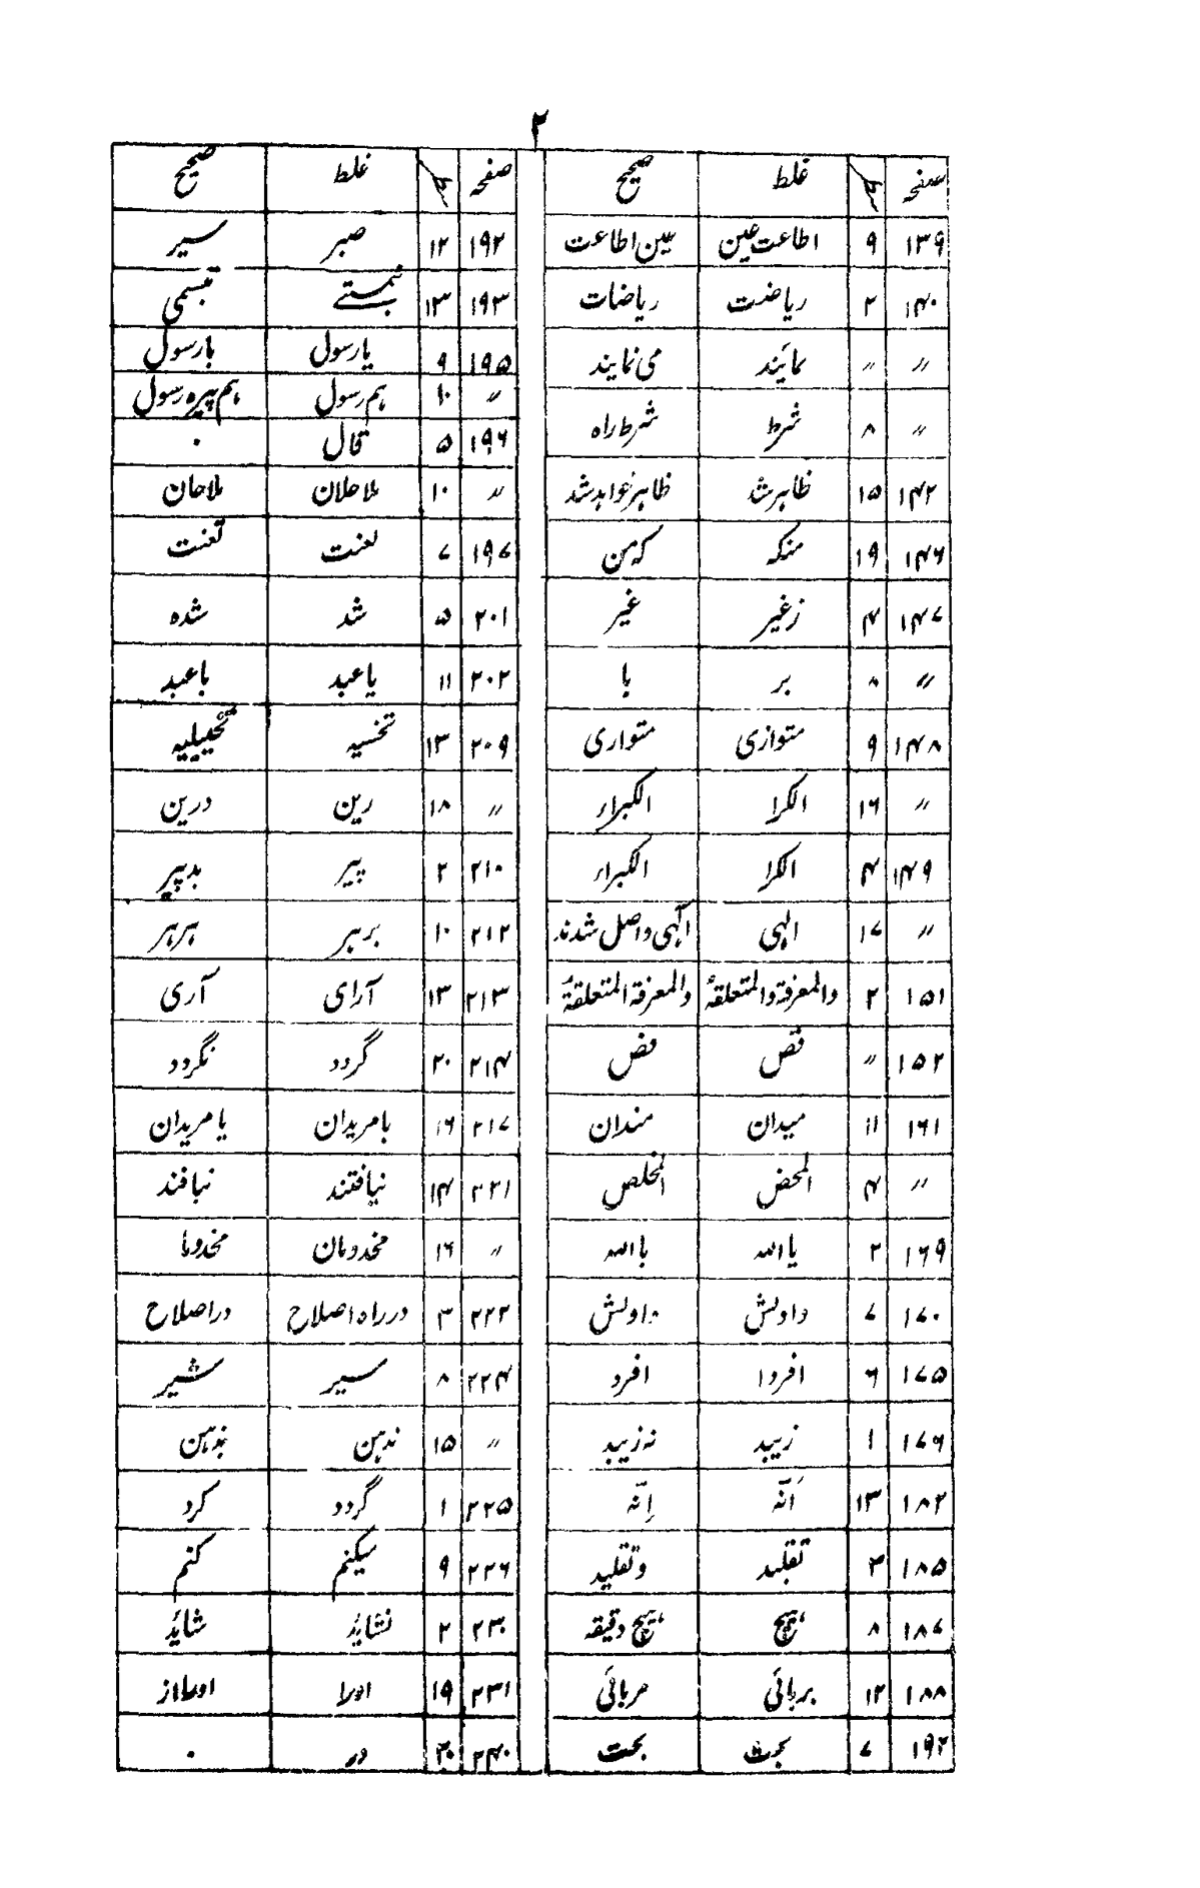 ۲
صفحہ سطر غلط صحیح
۱۳۹ ۹ اطاعت عین عین اطاعت
۱۴۰ ۲ ریاضت ریاضات
〃 〃 نمایند می نمایند
〃 ۸ شرط شرط راه
۱۴۲ ۱۵ ظاہر شد ظاہر خواہد شد
۱۴۶ ۱۹ منکہ کہ من
۱۴۷ ۴ زغیر غیر
〃 ۸ بر با
۱۴۸ ۹ متوازی متواری
〃 ۱۶ الکرا الکبراء
۱۴۹ ۴ الکرا الکبراء
〃 ۱۷ الہی الہی واصل شدند
۱۵۱ ۲ والمعرفۃ والمتعلقۃ والمعرفۃ المتعلقۃ
۱۵۲ 〃 قص فض
۱۶۱ ۱۱ میدان مندان
〃 ۴ المحض المخلص
۱۶۹ ۲ یا اللہ با اللہ
۱۷۰ ۷ داولش داولش
۱۷۵ ۶ افردا افرد
۱۷۶ ۱ زیبد نہ زیبد
۱۸۲ ۱۳ اَنّہ اِنّہ
۱۸۵ ۳ تقلید و تقلید
۱۸۷ ۸ ہیچ ہیچ دقیقہ
۱۸۸ ۱۲ بربائی مربائی
۱۹۲ ۷ بحث بحت
صفحہ سطر غلط صحیح
۱۹۲ ۱۲ صبر سیر
۱۹۳ ۱۳ تبسمی
۱۹۵ ۹ یا رسول با رسول
〃 ۱۰ ہم رسول ہم پیرہ رسول
۱۹۶ ۵ قال ۰
〃 ۱۰ ملا حلان ملا جان
۱۹۷ ۷ لعنت تعنت
۲۰۱ ۵ شد شدہ
۲۰۲ ۱۱ یا عبد با عبد
۲۰۹ ۱۳ تخسیہ تخییلیہ
〃 ۱۸ رین درین
۲۱۰ ۲ پیر بد پیر
۲۱۲ ۱۰ برہر ہر ہر
۲۱۳ ۱۳ آرای آری
۲۱۴ ۲۰ گردد نگردد
۲۱۷ ۱۶ بامریدان یا مریدان
۲۲۱ ۱۴ نیافتند نیافند
〃 ۱۶ مخدومان مخدوما
۲۲۲ ۳ در راہ اصلاح در اصلاح
۲۲۴ ۸ سیر شیر
〃 ۱۵ ندہن بدہن
۲۲۵ ۱ گردد کرد
۲۲۶ ۹ میکنم کنم
۲۳۰ ۲ نشاید شاید
۲۳۱ ۱۹ اورا اورا از
۲۴۰ ۲۰ در ۰